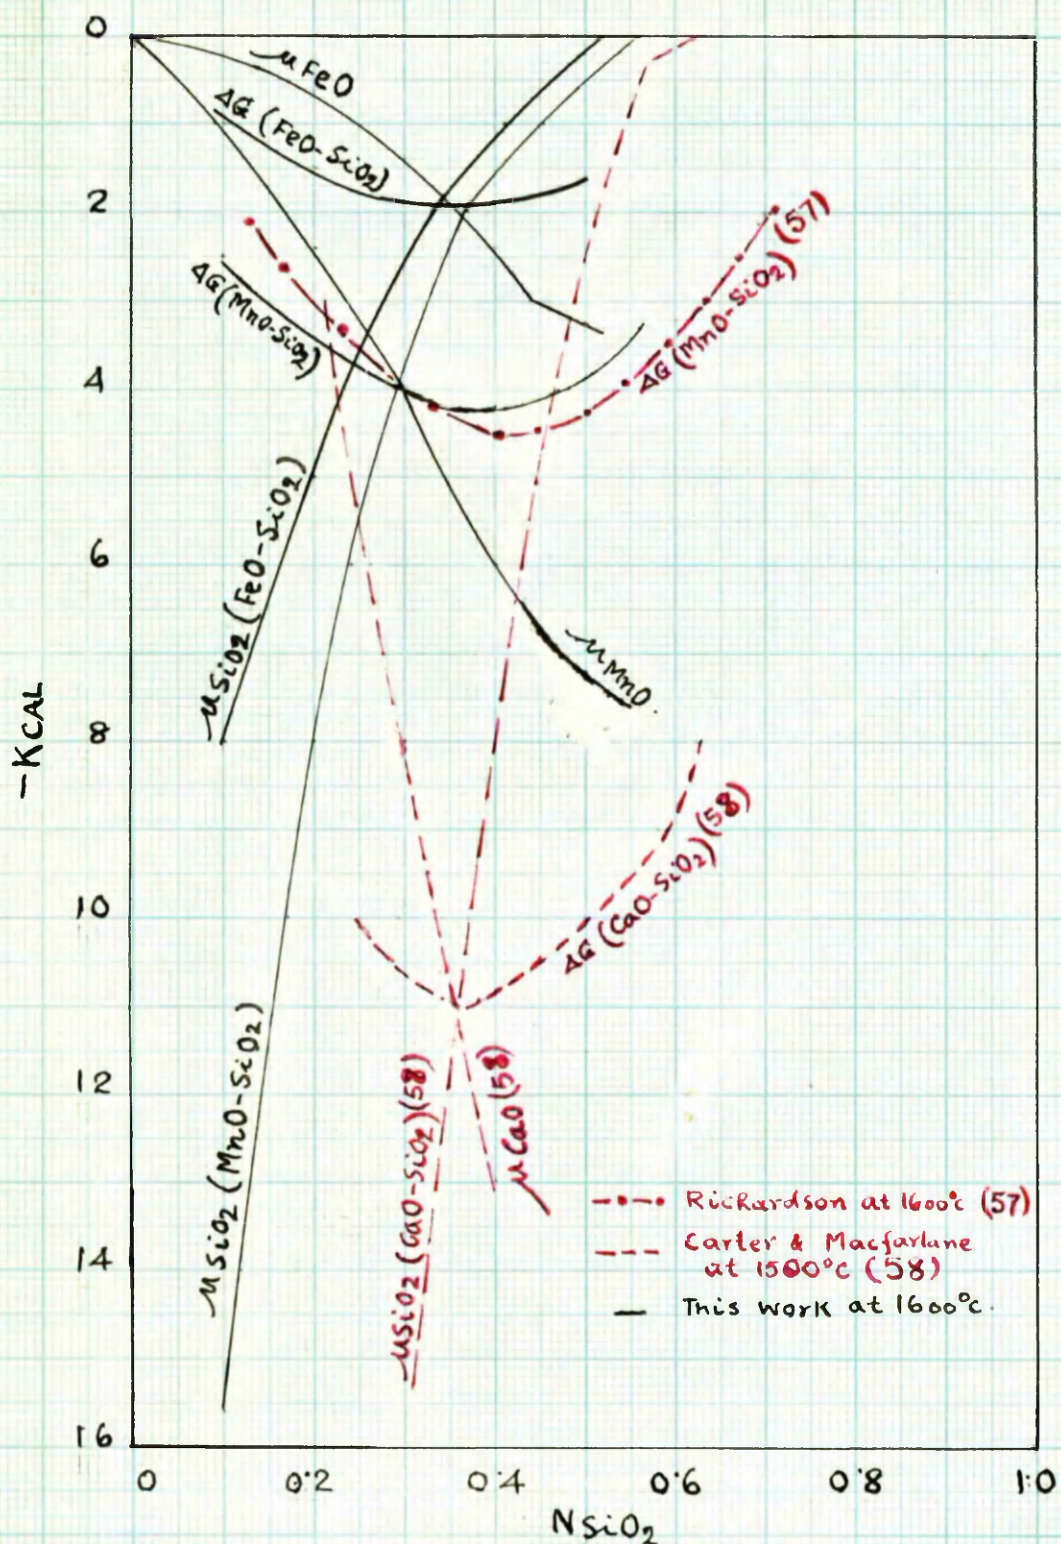 0
2
4
6
8
10
12
14
16
-KCAL
μFeO
ΔG (FeO-SiO₂)
ΔG (MnO-SiO₂)
ΔG (MnO-SiO₂) (57)
μSiO₂ (FeO-SiO₂)
μMnO
ΔG (CaO-SiO₂) (58)
μSiO₂ (MnO-SiO₂)
μSiO₂ (CaO-SiO₂) (58)
μCaO (58)
Richardson at 1600°C (57)
Carter & Macfarlane
at 1500°C (58)
This work at 1600°C.
0 0.2 0.4 0.6 0.8 1.0
NSiO₂